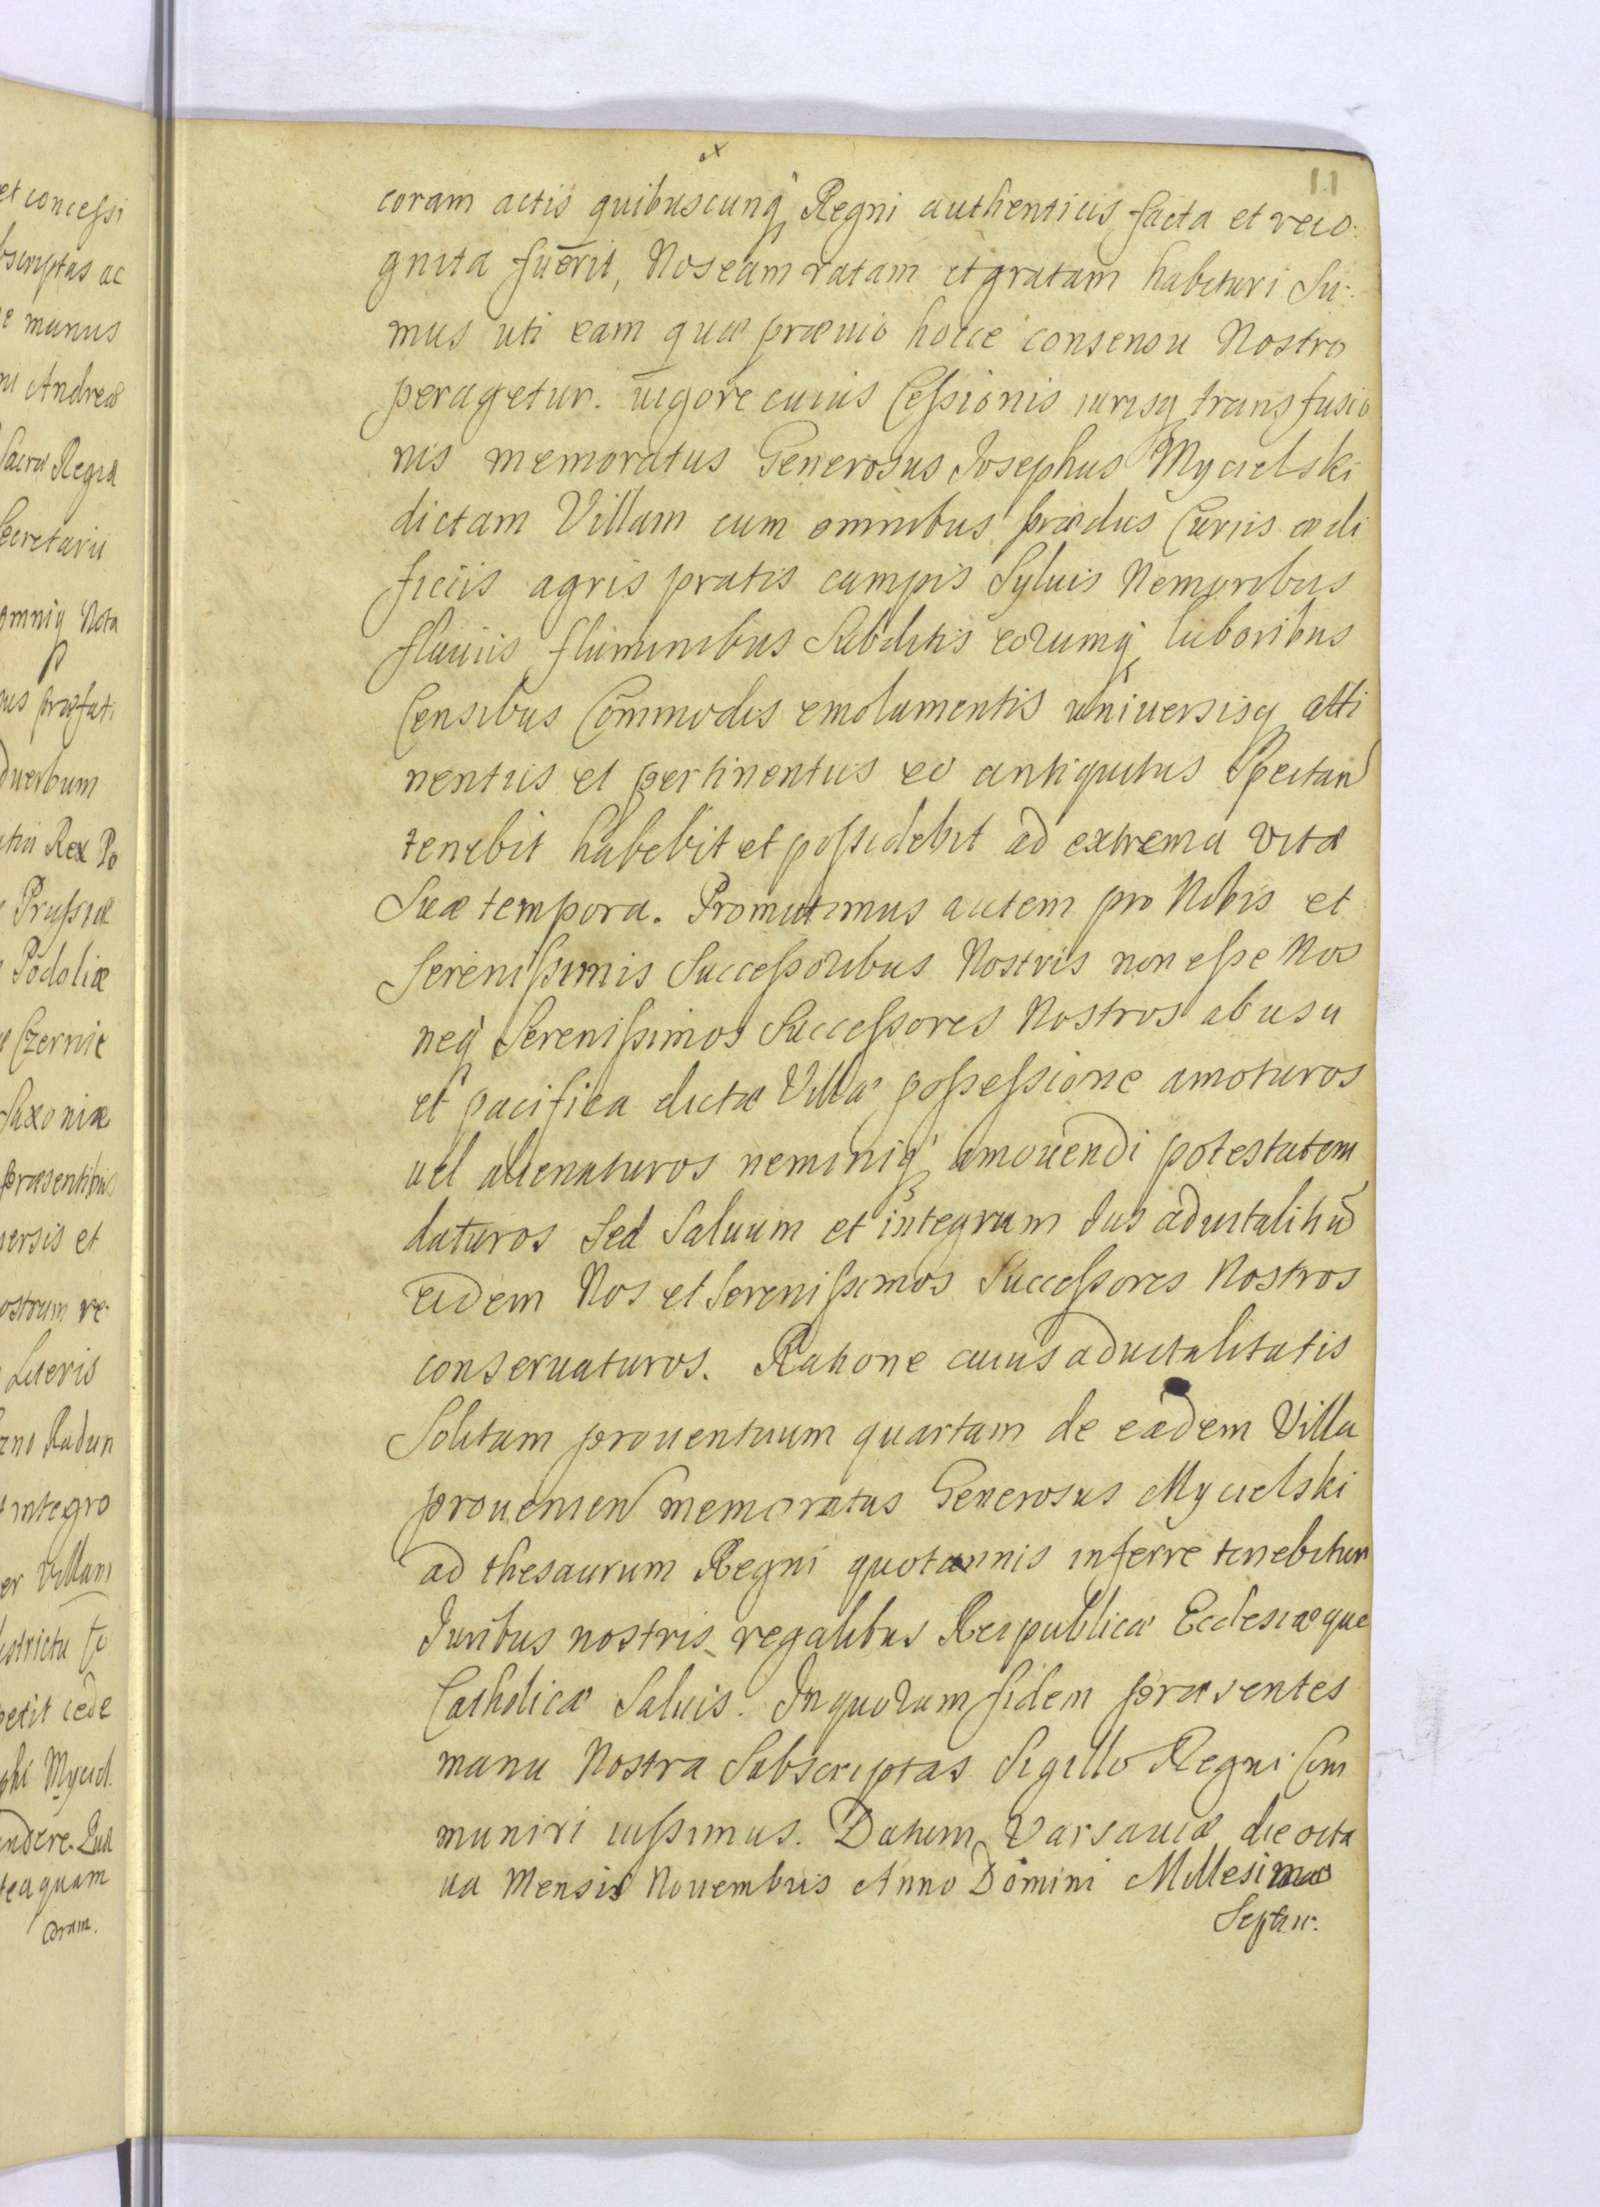 11
coram actis quibuscunq Regni authenticis facta et reco-
gnita fuerit, Nos eam ratam et gratam habituri Su-
mus uti eam quæ prævio hocce consensu Nostro
peragetur. vigore cuius Cessionis iurisq transfusio
nis memoratus Generosus Josephus Mycielski
dictam Villam cum omnibus prædiis Curiis ædi
ficiis agris pratis campis Syluis Nemoribus
fluuiis fluminibus Subditis eorumq laboribus
Censibus Commodis emolumentis uniuersisq atti
nentiis et pertinentiis eo antiquitus Spectan
tenebit habebit et possidebit ad extrema vitæ
Suæ tempora. Promittimus autem pro Nobis et
Serenissimis Successoribus Nostris non esse Nos
neq Serenissimos Successores Nostros ab usu
et pacifica dictæ Villæ possessione amoturos
uel alienaturos neminiq amouendi potestatem
daturos Sed Saluum et integrum Jus aduitalitiũ
eidem Nos et Serenissimos Successores Nostros
conseruaturos. Ratione cuius aduitalitatis
Solitam prouentuum quartam de eadem Villa
prouenien memoratus Generosus Mycielski
ad thesaurum Regni quotannis inferre tenebitur
Juribus nostris regalibus Reipublicæ Ecclesiæque
Catholicæ Saluis. In quorum fidem præsentes
manu Nostra Subscriptas Sigillo Regni Com
muniri iussimus. Datum Varsauiæ die octa
ua Mensis Nouembris Anno Domini Millesimo